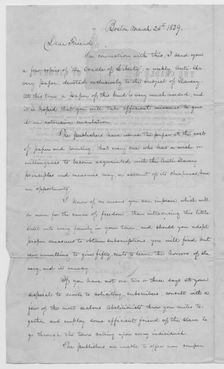 Boston March 20th 1839.
Dear Friend,
In connection with this, I send you
a few copies of the Cradle of Liberty, a weekly Anti-Sla-
very paper devoted exclusively to the subject of slavery.
At this time a paper of this kind is very much needed, and
it is hoped that you will take efficient measures to give
it an extensive circulation.
The publishers have issued the paper at the cost
of paper and printing, that every one who has a wish or
willingness to become acquainted with the Anti-Slavery
principles and measures may, on account of its cheapness, have
an opportunity.
I know of no means you can improve which will
do more for the cause of freedom than introducing this little
sheet into every family in your town and should you adopt
proper measures to obtain subscriptions you will find but
few unwilling to give fifty cents to learn the horrors of sla-
very and its remedy.
If you have not one two or three days at your
disposal to devote to soliciting subscribers, consult with a
few of the most zealous Abolitionists whom you wish to-
gether and employ some efficient friend of the slave to
go through the town calling upon every individual.
The publishers are unable to offer any compen-